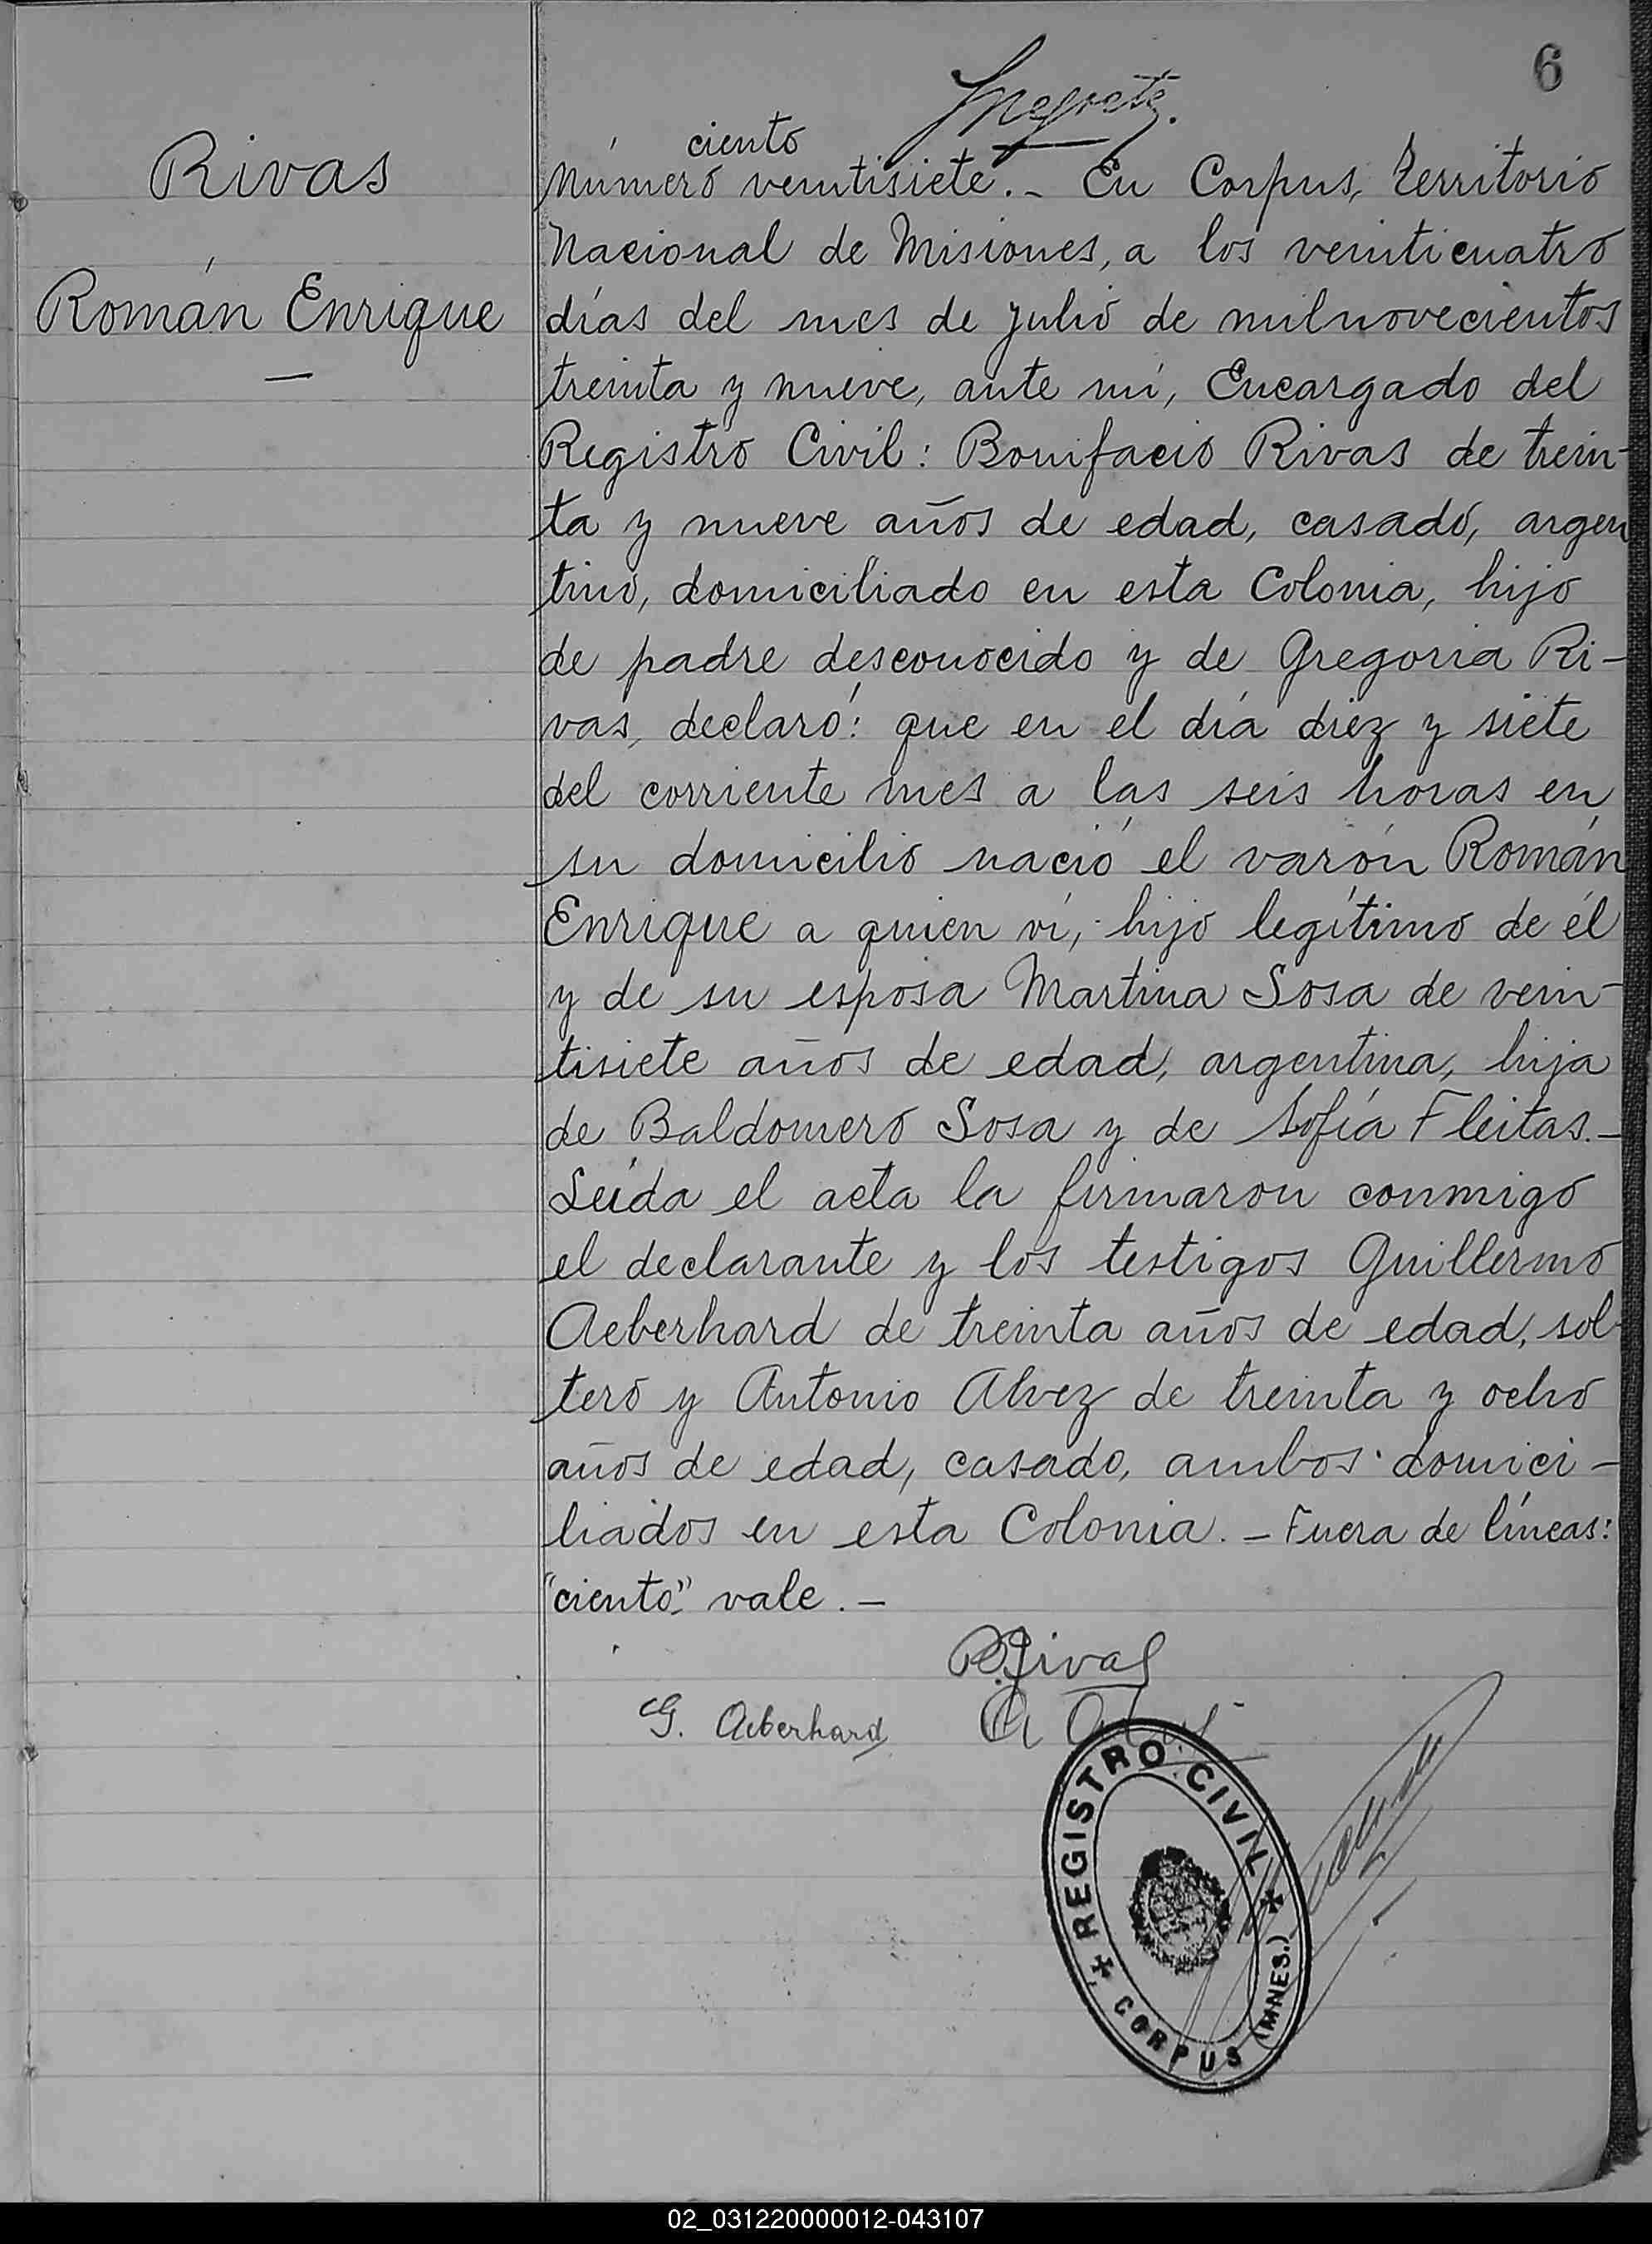 6
Rivas
Román Enrique
ciento
Número veintisiete.- En Corpus, Territorio
Nacional de Misiones, a los veinticuatro
días del mes de julio de milnovecientos
treinta y nueve, ante mí, Encargado del
Registro Civil: Bonifacio Rivas de trein-
ta y nueve años de edad, casado, argen
tino, domiciliado en esta Colonia, hijo
de padre desconocido y de Gregoria Ri-
vas, declaró: que en el día diez y siete
del corriente mes a las seis horas en
su domicilio nació el varón Román
Enrique a quien ví, hijo legítimo de él
y de su esposa Martina Sosa de vein-
tisiete años de edad, argentina, hija
de Baldomero Sosa y de Sofía Fleitas.-
Leída el acta la firmaron conmigo
el declarante y los testigos Guillermo
Aeberhard de treinta años de edad, sol-
tero y Antonio Alvez de treinta y ocho
años de edad, casado, ambos domici-
liados en esta Colonia. - Fuera de líneas:
"ciento" vale. -
B. Rivas
G. Aeberhard
REGISTRO CIVIL
CORPUS (MNES.)
02_031220000012-043107